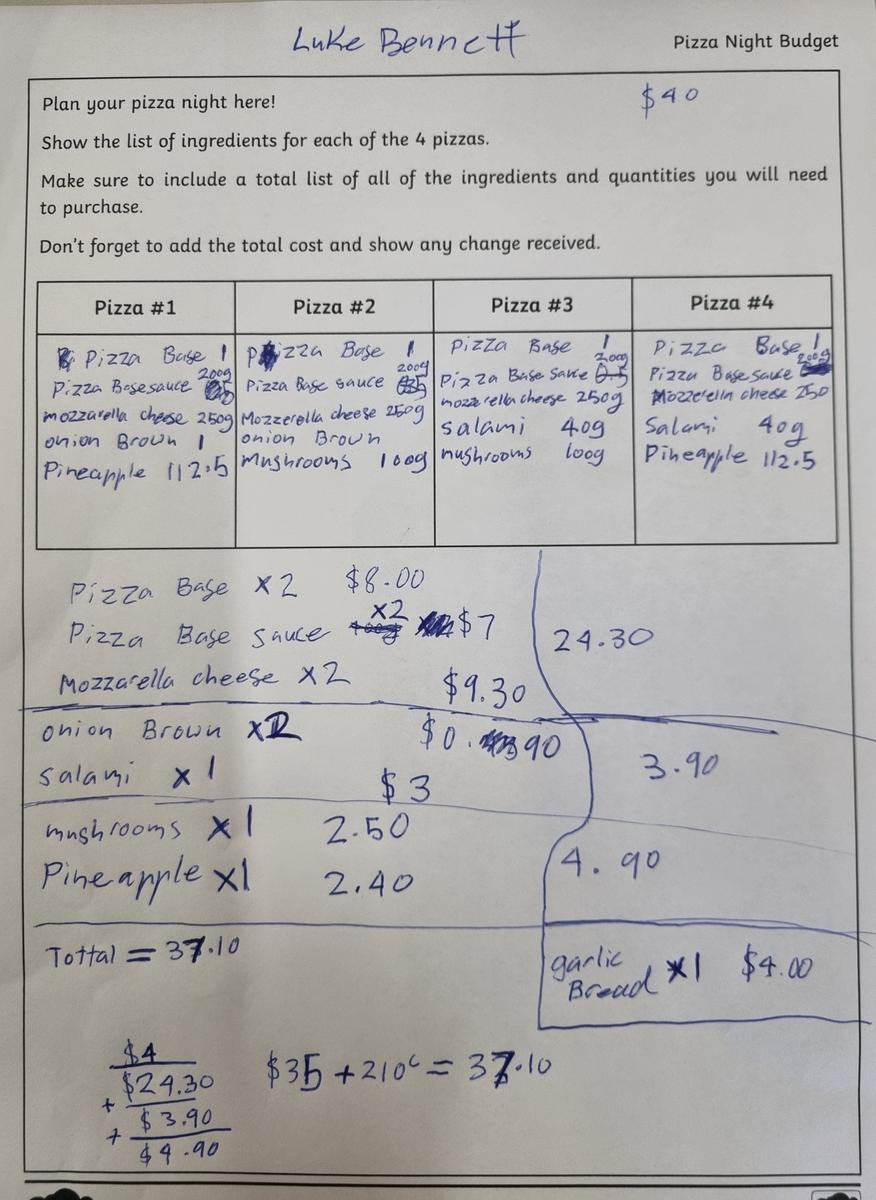 Luke Bennett
Pizza Night Budget
Plan your pizza night here!
$40
Show the list of ingredients for each of the 4 pizzas.
Make sure to include a total list of all of the ingredients and quantities you will need
to purchase.
Don't forget to add the total cost and show any change received.
Pizza #1
Pizza Base 1
Pizza Base sauce 200g
mozzarella cheese 250g
onion Brown 1
Pineapple 112.5
Pizza #2
Pizza Base 1
Pizza Base sauce 200g
Mozzerella cheese 250g
onion Brown
Mushrooms 100g
Pizza #3
Pizza Base 1
Pizza Base sauce 200g
mozzerella cheese 250g
salami 40g
mushrooms 100g
Pizza #4
Pizza Base 1
Pizza Base sauce 200g
Mozzerella cheese 250
Salami 40g
Pineapple 112.5
Pizza Base x2 $8.00
Pizza Base sauce x2 $7
Mozzarella cheese x2 $9.30
24.30
onion Brown x2 $0.90
salami x1 $3
3.90
mushrooms x1 2.50
Pineapple x1 2.40
4.90
Tottal = 37.10
garlic
Bread x1 $4.00
$4
$24.30
+ $3.90
+ $4.90
$35 + 210c = 37.10